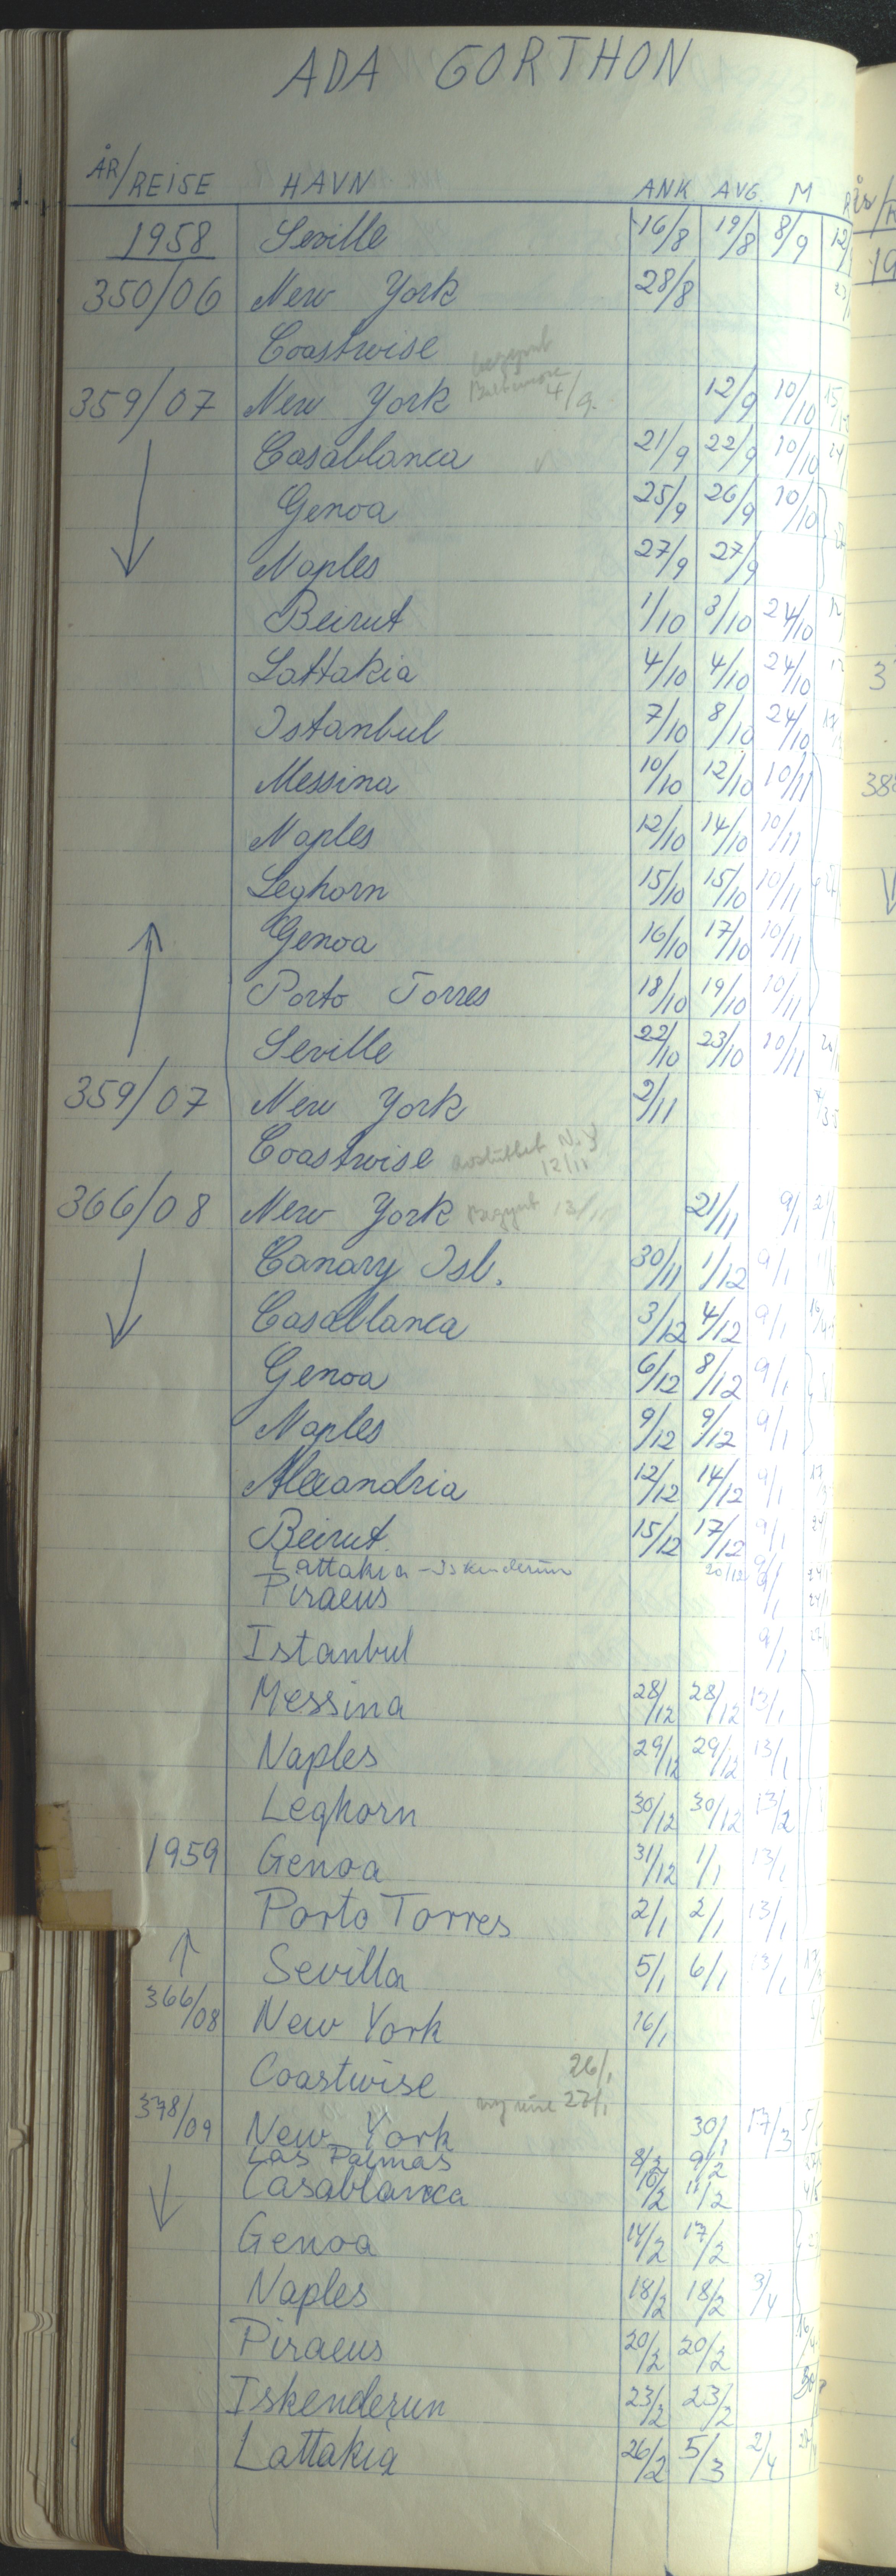 ADA GORTHON
ÅR/REISE HAVN ANK AVG. M
1958 Seville 16/8 19/8 8/9
350/06 New York 28/8
Coastwise
begynt
Baltimore
359/07 New York 4/9. 12/9 10/10
Casablanca 21/9 22/9 10/10
Genoa 25/9 26/9 10/10
Naples 27/9 27/9
Beirut 1/10 3/10 24/10
Lattakia 4/10 4/10 24/10
Istanbul 7/10 8/10 24/10
Messina 10/10 12/10 10/11
Naples 12/10 14/10 10/11
Leghorn 15/10 15/10 10/11
Genoa 16/10 17/10 10/11
Porto Torres 18/10 19/10 10/11
Seville 22/10 23/10 10/11
359/07 New York 2/11
Coastwise avsluttet N.Y 12/11
366/08 New York Begynt 13/11 21/11 9/1
Canary Isl. 30/11 1/12 9/1
Casablanca 3/12 4/12 9/1
Genoa 6/12 8/12 9/1
Naples 9/12 9/12 9/1
Alexandria 12/12 14/12 9/1
Beirut. 15/12 17/12 9/1
Lattakia - Iskenderun 20/12 9/1
Piraeus 9/1
Istanbul 9/1
Messina 28/12 28/12 13/1
Naples 29/12 29/12 13/1
Leghorn 30/12 30/12 13/2
1959 Genoa 31/12 1/1 13/1
Porto Torres 2/1 2/1 13/1
Sevilla 5/1 6/1 13/1
366/08 New York 16/1
Coastwise 26/1
378/09 New York 30/1 17/3
Las Palmas 8/2 9/2
Casablanca 10/2 11/2
Genoa 14/2 17/2
Naples 18/2 18/2 3/4
Piraeus 20/2 20/2
Iskenderun 23/2 23/2
Lattakia 26/2 5/3 2/4